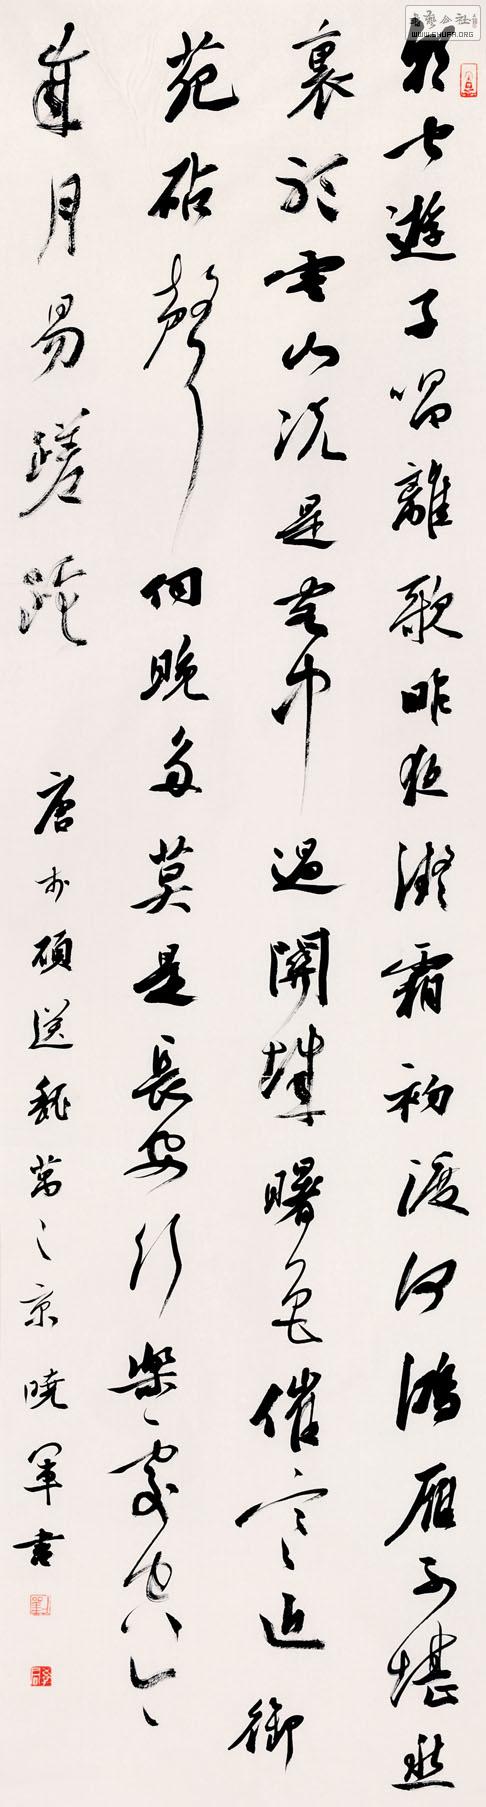 書藝公社
WWW.SHUFA.ORG
朝聞遊子唱離歌昨夜微霜初渡河鴻雁不堪愁
裏聽雲山況是客中過關城曙色催寒近御
苑砧聲向晚多莫是長安行樂處空令
歲月易蹉跎
唐李頎送魏萬之京曉軍書